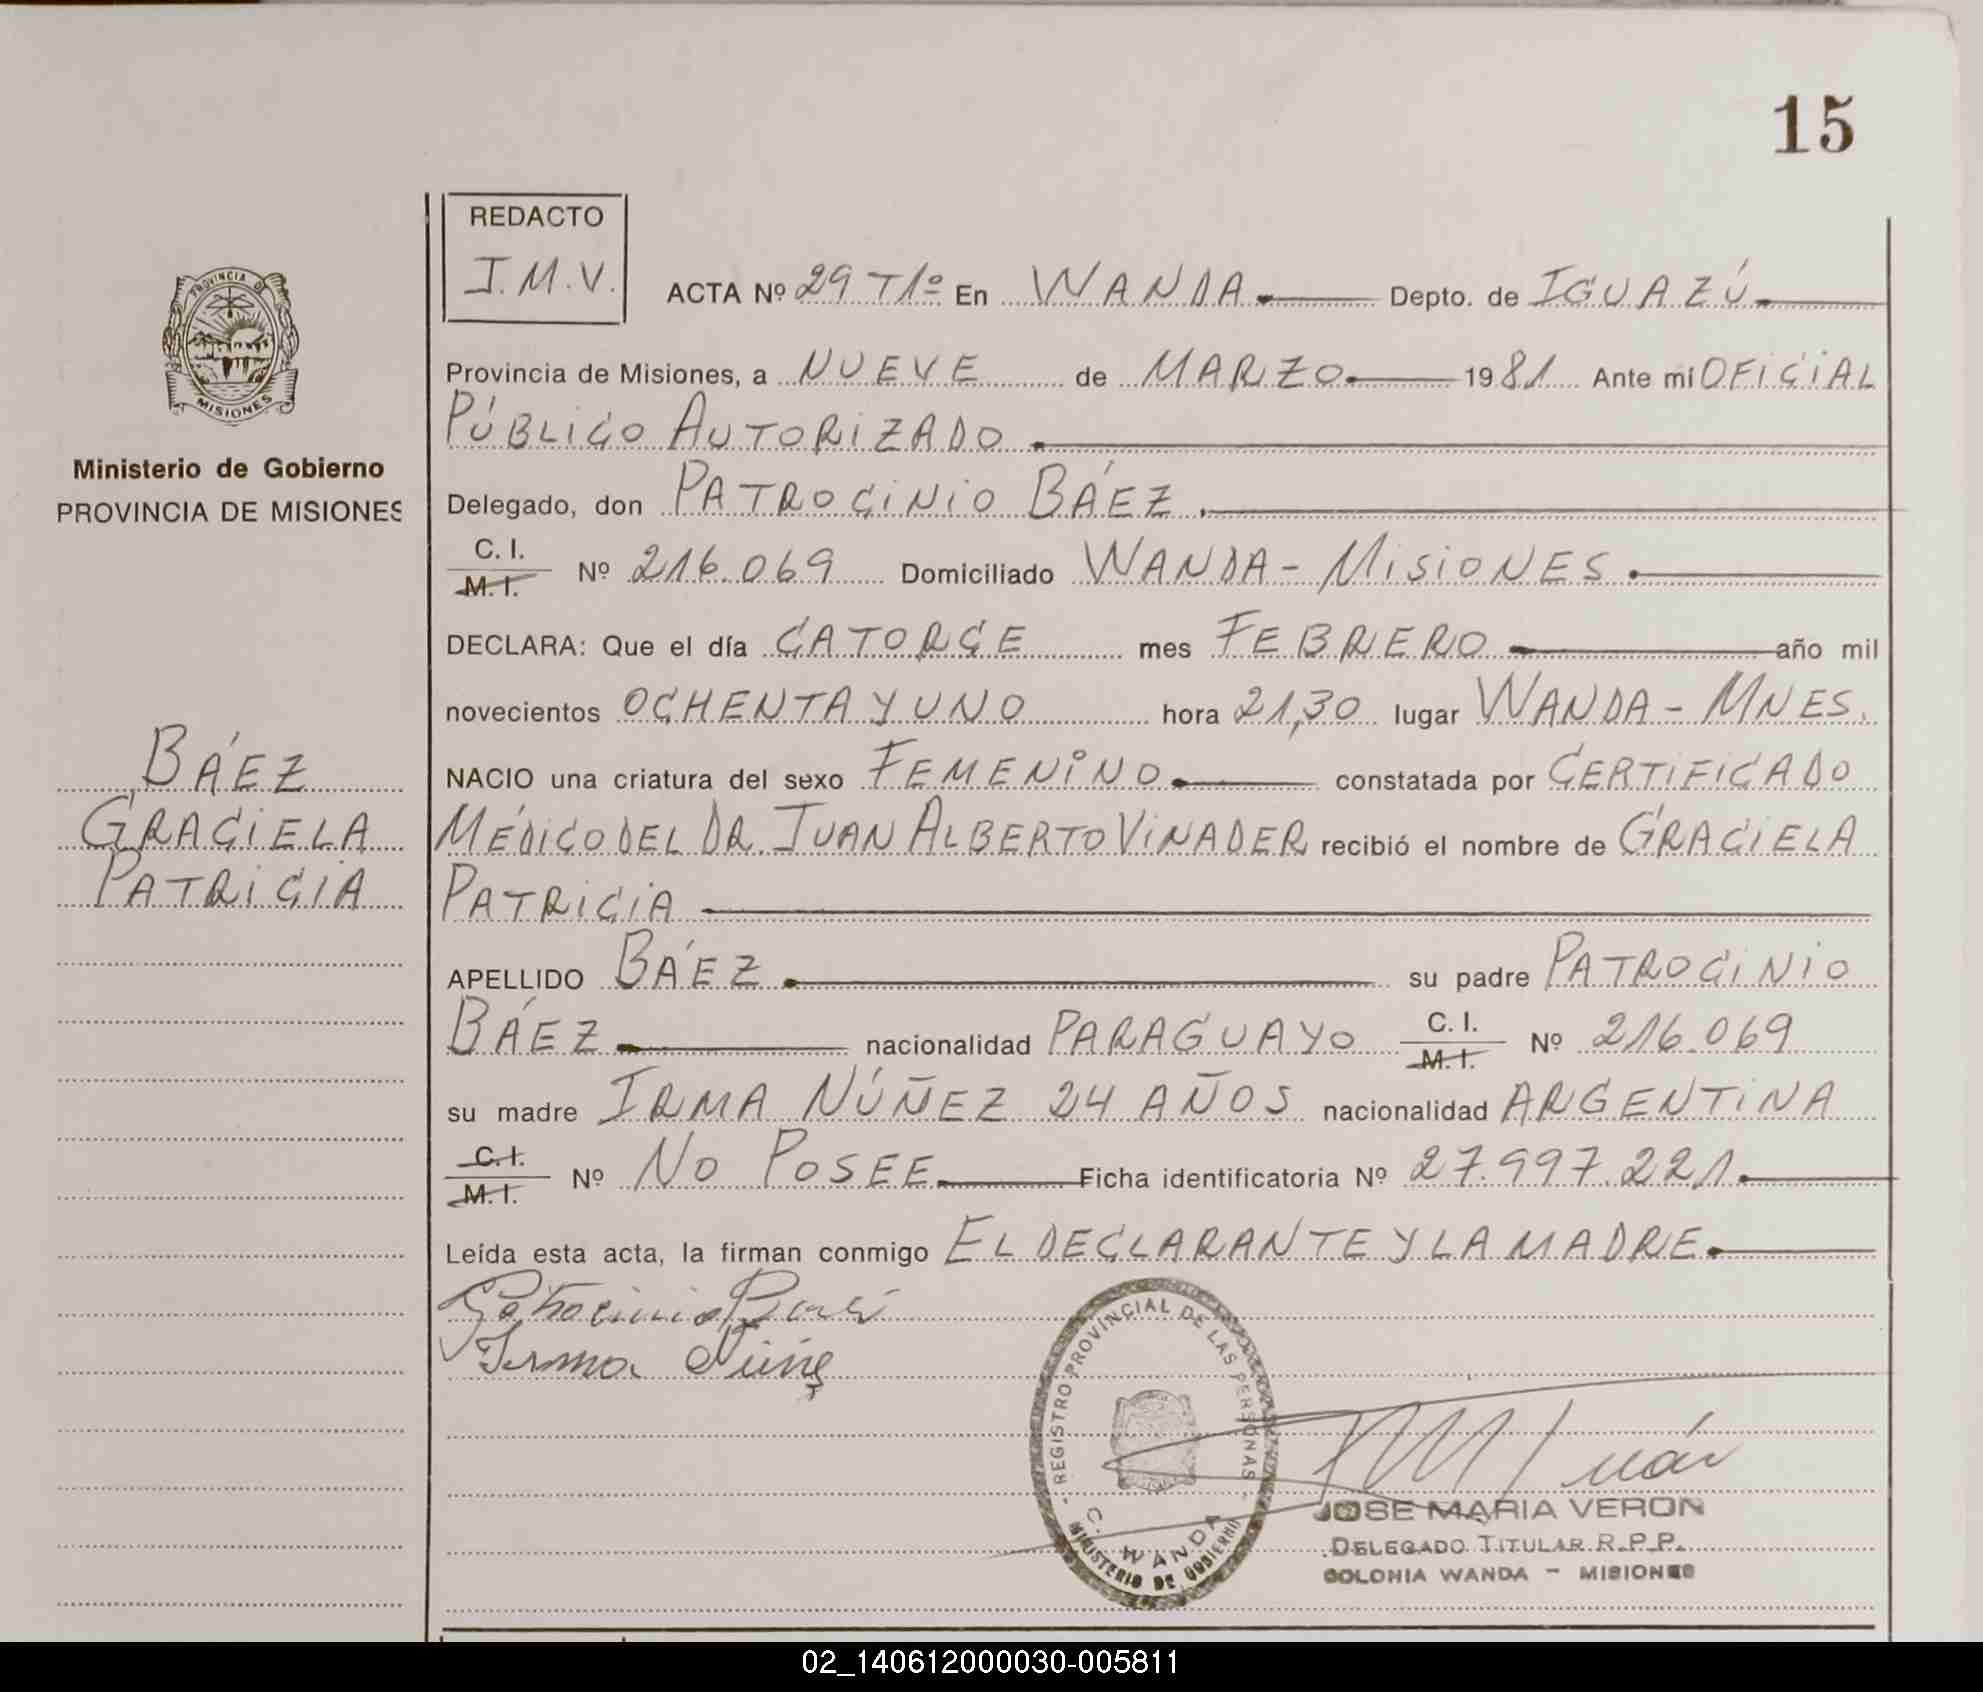 15
REDACTO
J.M.V.
ACTA Nº 29 T1º En WANDA Depto. de IGUAZÚ
Provincia de Misiones, a NUEVE de MARZO 1981 Ante mi OFICIAL
PÚBLICO AUTORIZADO
Delegado, don PATROCINIO BÁEZ
C. I.
M. I. Nº 216.069 Domiciliado WANDA - MISIONES
DECLARA: Que el día CATORCE mes FEBRERO año mil
novecientos OCHENTA Y UNO hora 21,30 lugar WANDA - MNES.
NACIO una criatura del sexo FEMENINO constatada por CERTIFICADO
MÉDICO DEL DR. JUAN ALBERTO VINADER recibió el nombre de GRACIELA
PATRICIA
APELLIDO BÁEZ su padre PATROCINIO
BÁEZ nacionalidad PARAGUAYO C. I.
M. I. Nº 216.069
su madre IRMA NÚÑEZ 24 AÑOS nacionalidad ARGENTINA
C. I.
M. I. Nº NO POSEE Ficha identificatoria Nº 27.997.221
Leída esta acta, la firman conmigo EL DECLARANTE Y LA MADRE
Patrocinio Baez
Irma Núñez
PROVINCIA DE
MISIONES
Ministerio de Gobierno
PROVINCIA DE MISIONES
BÁEZ
GRACIELA
PATRICIA
- REGISTRO PROVINCIAL DE LAS PERSONAS -
C. WANDA
MINISTERIO DE GOBIERNO
JOSE MARIA VERON
DELEGADO TITULAR R.P.P.
COLONIA WANDA - MISIONES
02_140612000030-005811